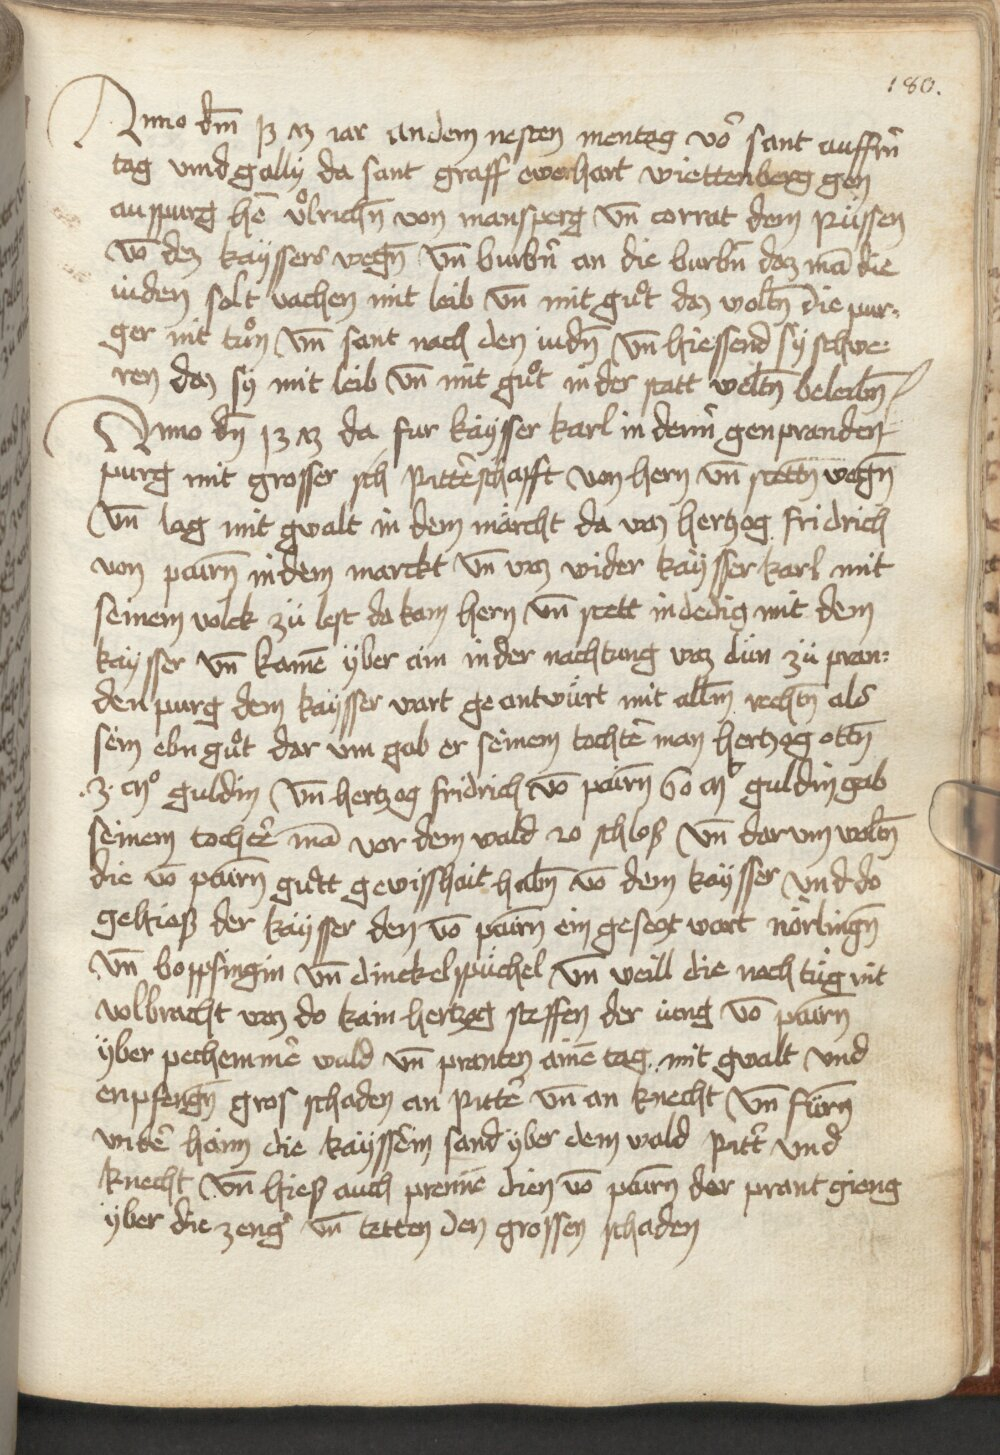 180.
Anno dm̄ 1373 iar an dem nesten mentag vō sant auffrn̄
tag vnd gally da sant graff eberhart wirttenberg gen
auspurg hē vͦlrichn̄ von mansperg vn̄ corrat dem Rüssen
vō dez kayssers wegn̄ vn̄ burbn̄ an die burbn̄ daz mā die
iuden solt vachen mit leib vn̄ mit guͦt daz woltn̄ die pur-
ger nit tuͦn vn̄ sant nach den iudn̄ vn̄ hiessend sÿ schwe-
ren daz sÿ mit leib vn̄ mit guͦt in der statt weltn̄ beleibn̄
Anno dn̄ 1373 da fur kaÿsser karl in denn̄ gen pranden
purg mit grosser sch Rittēschafft von hern vn̄ stettn̄ wegn̄
vn̄ lag mit gwalt in dem märcht da waz hertzog fridrich
von pairn̄ in dem marckt vn̄ waz wider kaÿsser karl mit
seinem volck zü lest da kam hern vn̄ stett in dedig mit dem
kaÿsser vn̄ kamē ÿber ain in der nachtung waz dün zü pran-
den purg dem kaÿsser wart ge antwürt mit allm̄ rechtn̄ als
sein ebn guͦt dar vm gab er seinem tochtē man hertzog ottn̄
.3. cmͦ guldin vn̄ hertzog fridrich vō pairn̄ 60 mͦ guldin gab
seinem tochtē mā vor dem wald 20 schloß vn̄ dar vm woltn̄
die vō pairn̄ guͦtt gewisshait habn̄ vō dem kaÿsser vnd do
gehiaß der kaÿsser den vō pairn̄ ein gesetzt wart nörlingn̄
vn̄ boppfingin vn̄ dinckelspüchel vn̄ weill die noch tüg nit
volbracht waz do kam hertzog steffen der iung vō pairn̄
ÿber pechemmē wald vn̄ pranten ainē tag mit gwalt vnd
enpfengn̄ gros schaden an Rittē vn̄ an knecht vn̄ fürn̄
widē haim die kaÿssē̄in sand ÿber dem wald Ritt̄ vnd
knecht vn̄ hieß auch prennē dien vō pairn̄ der prant gieng
ÿber die zenḡ vn̄ tetten den grossen schaden